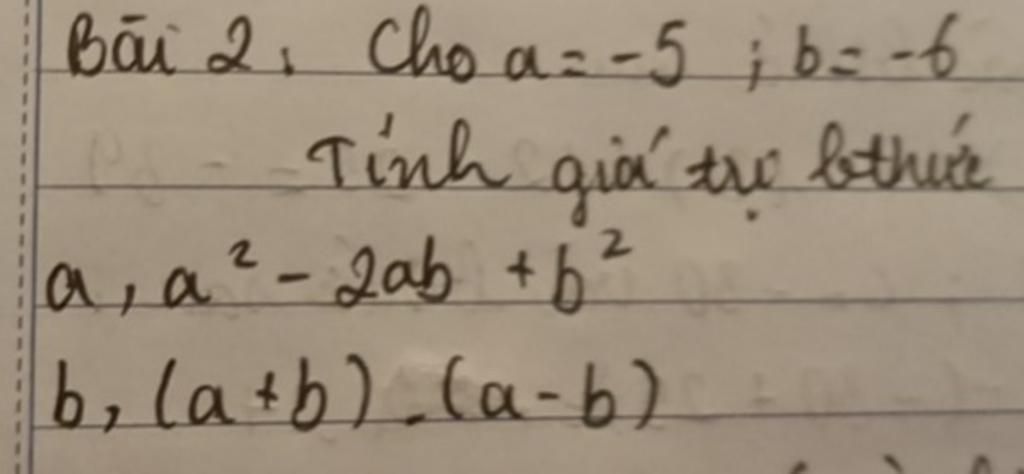 Bài 2: Cho a = -5 ; b = -6
Tính giá trị b.thức
a, a² - 2ab + b²
b, (a + b) . (a - b)